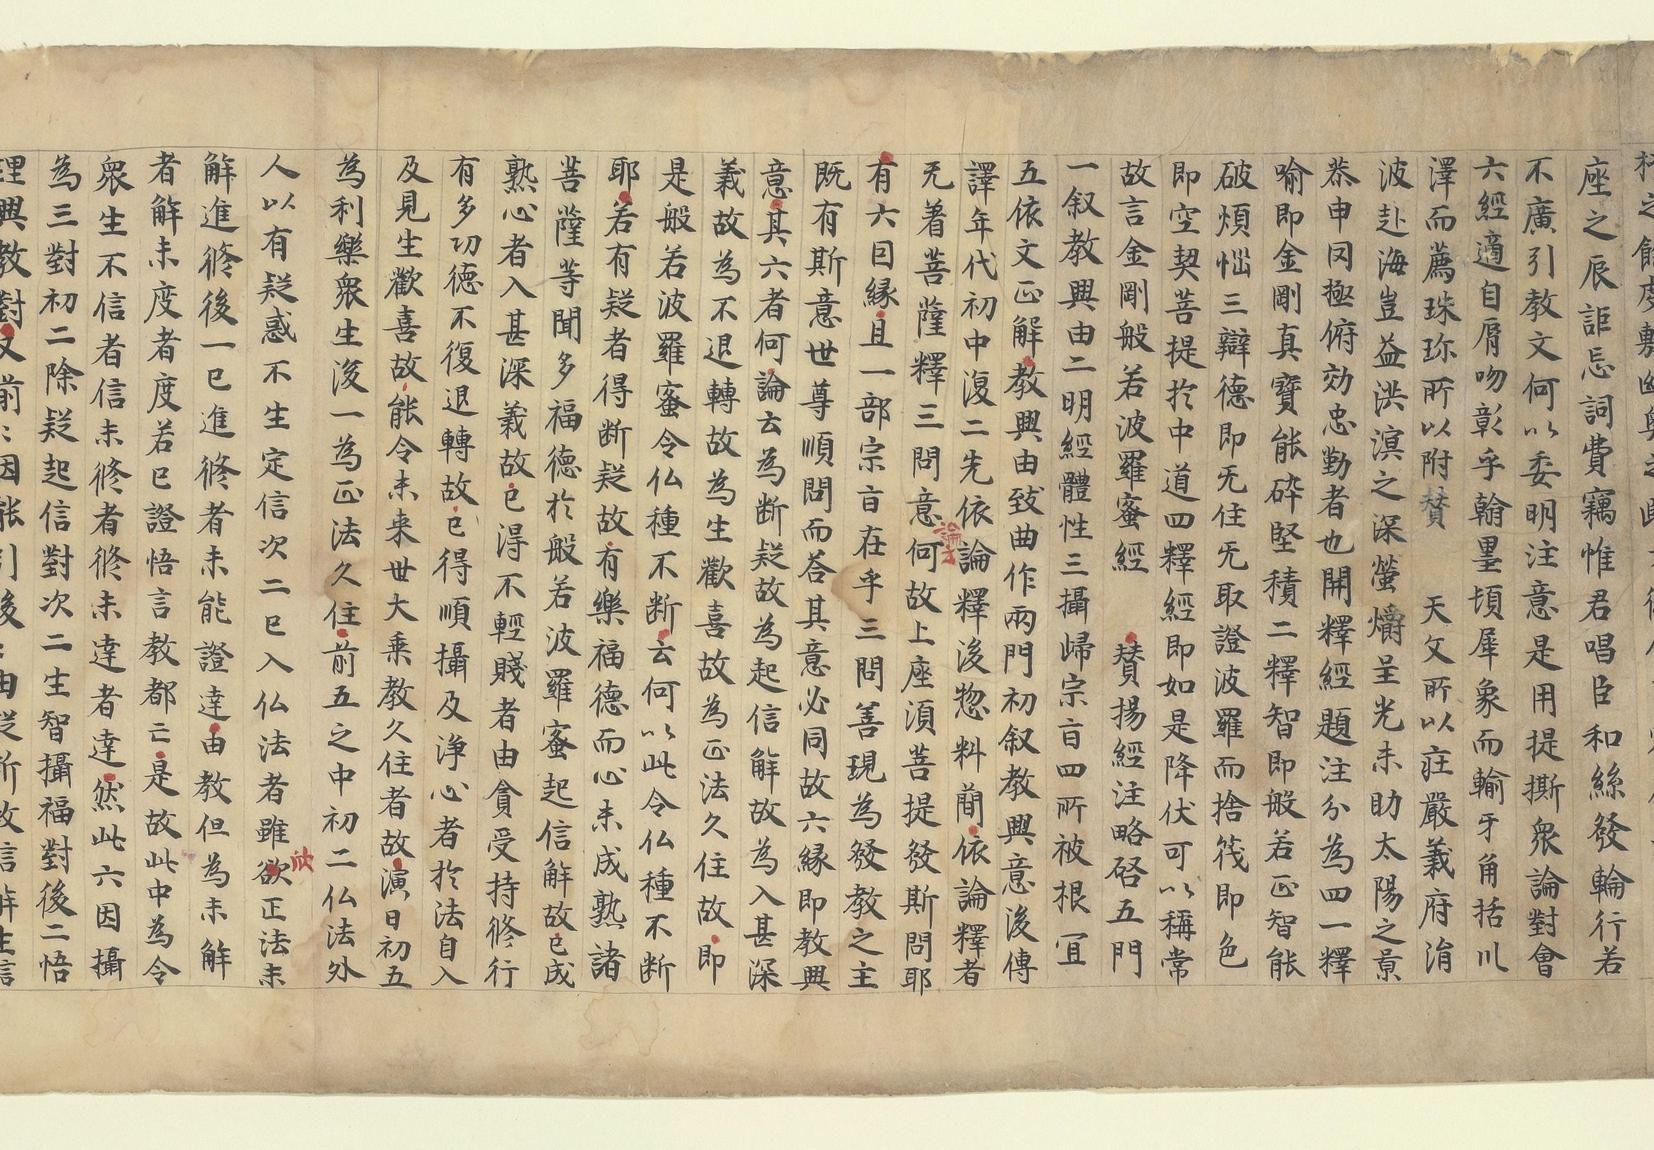 座之辰詎忘詞費竊惟君唱臣和絲發輪行若
不廣引教文何以委明注意是用提撕衆論對會
六經適自屑吻彰乎翰墨頃犀象而輸牙角括川
澤而薦珠珎所以附賛 天文所以莊嚴義府涓
波赴海豈益洪溟之深螢爝呈光未助太陽之景
恭申罔極俯効忠勤者也開釋經題注分為四一釋
喻即金剛真寶能碎堅積二釋智即般若正智能
破煩惱三辯德即无住无取證波羅而捨筏即色
即空契菩提於中道四釋經即如是降伏可以稱常
故言金剛般若波羅蜜經 賛揚經注略啓五門
一叙教興由二明經體性三攝歸宗旨四所被根冝
五依文正解教興由致曲作兩門初叙教興意後傳
譯年代初中復二先依論釋後惣料蕳依論釋者
无著菩薩釋三問意論云何故上座湏菩提發斯問耶
有六曰縁且一部宗旨在乎三問善現為發教之主
既有斯意世尊順問而荅其意必同故六縁即教興
意其六者何論云為断疑故為起信解故為入甚深
義故為不退轉故為生歡喜故為正法久住故即
是般若波羅蜜令仏種不断云何以此令仏種不断
耶若有疑者得断疑故有樂福德而心未成熟諸
菩薩等聞多福德於般若波羅蜜起信解故已成
熟心者入甚深義故已得不輕賤者由貪受持修行
有多功德不復退轉故已得順攝及浄心者於法自入
及見生歡喜故能令未来世大乗教久住者故演曰初五
為利樂衆生後一為正法久住前五之中初二仏法外
人以有疑惑不生定信次二已入仏法者雖欲欣正法未
解進修後一已進修者未能證達由教但為未解
者解未度者度若已證悟言教都亡是故此中為令
衆生不信者信未修者修未達者達然此六因攝
為三對初二除疑起信對次二生智攝福對後二悟